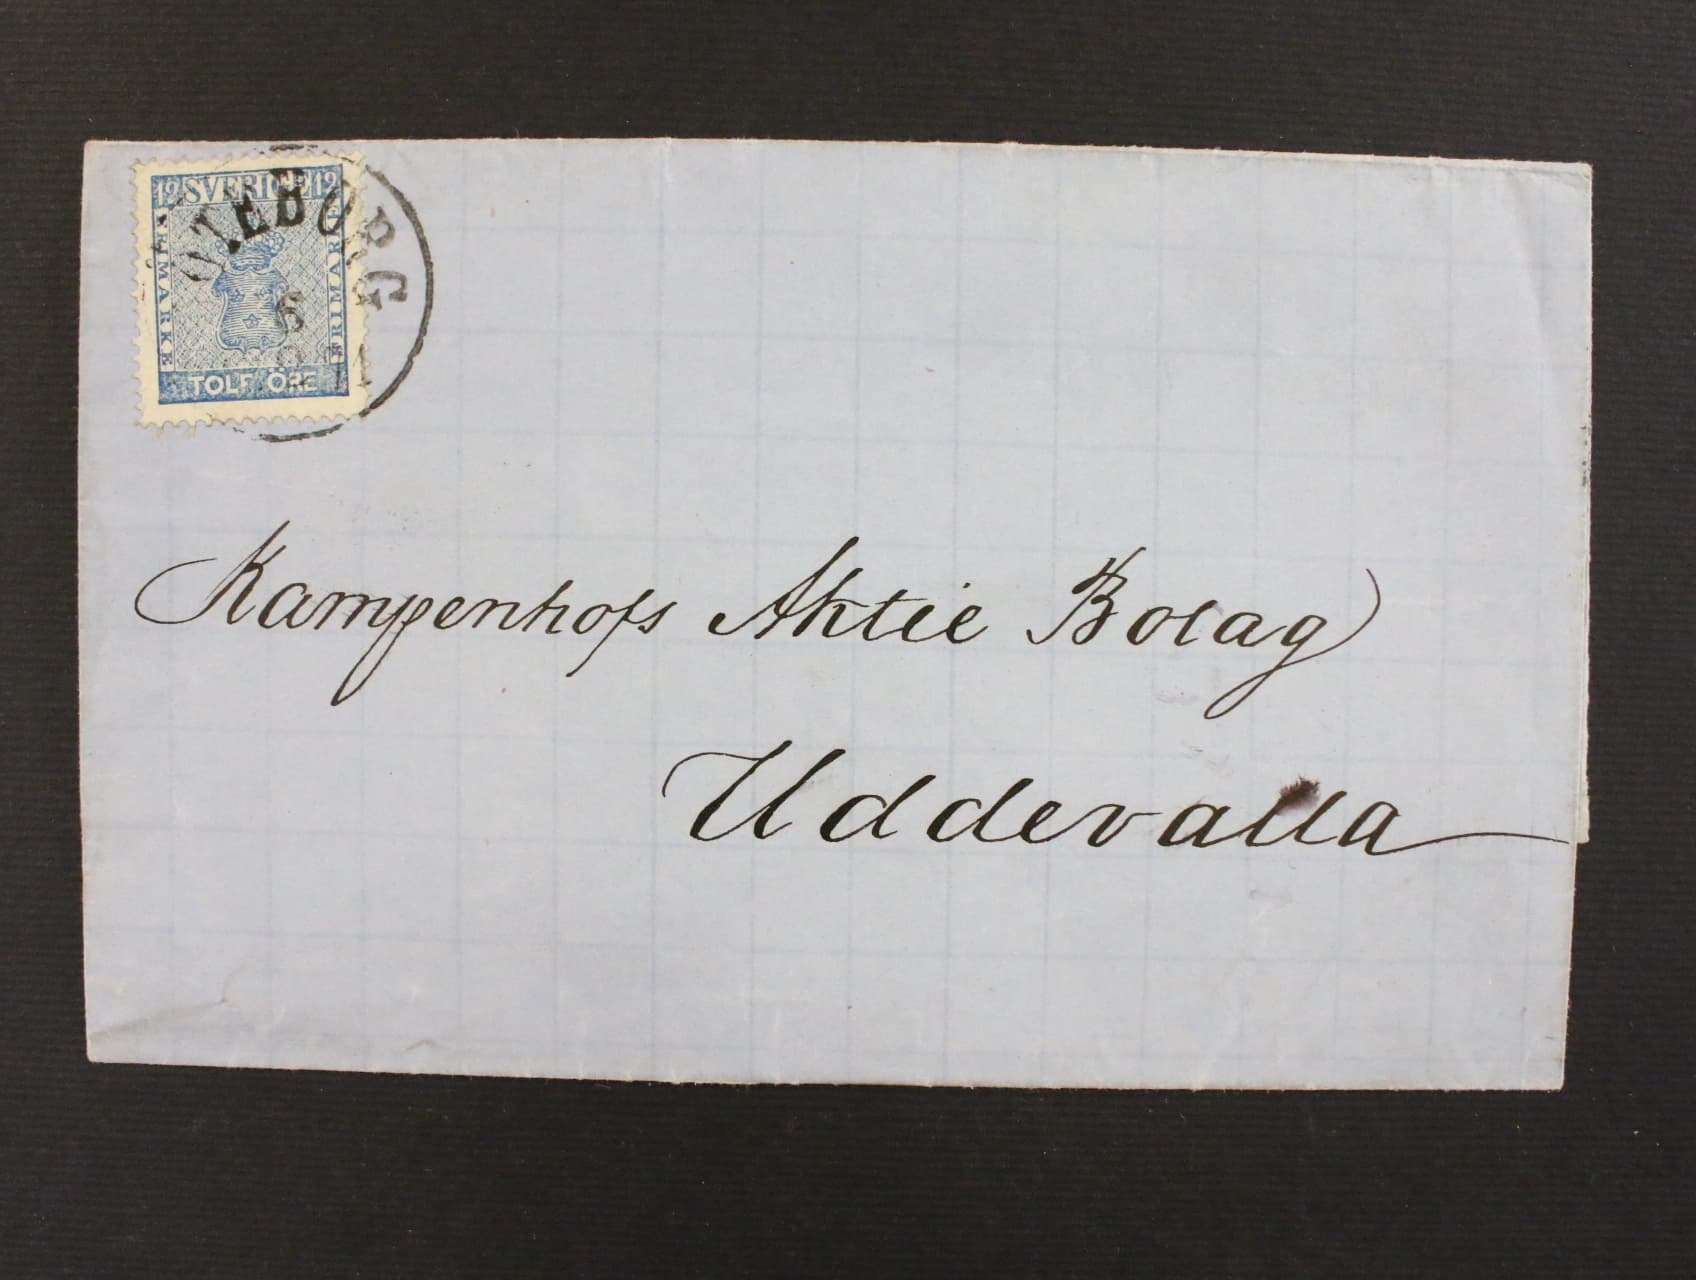 12 SVERIGE 12
FRIMARKE
FRIMARKE
TOLF ÖRE
GÖTEBORG
6
Kampenhofs Aktie Bolag
Uddevalla